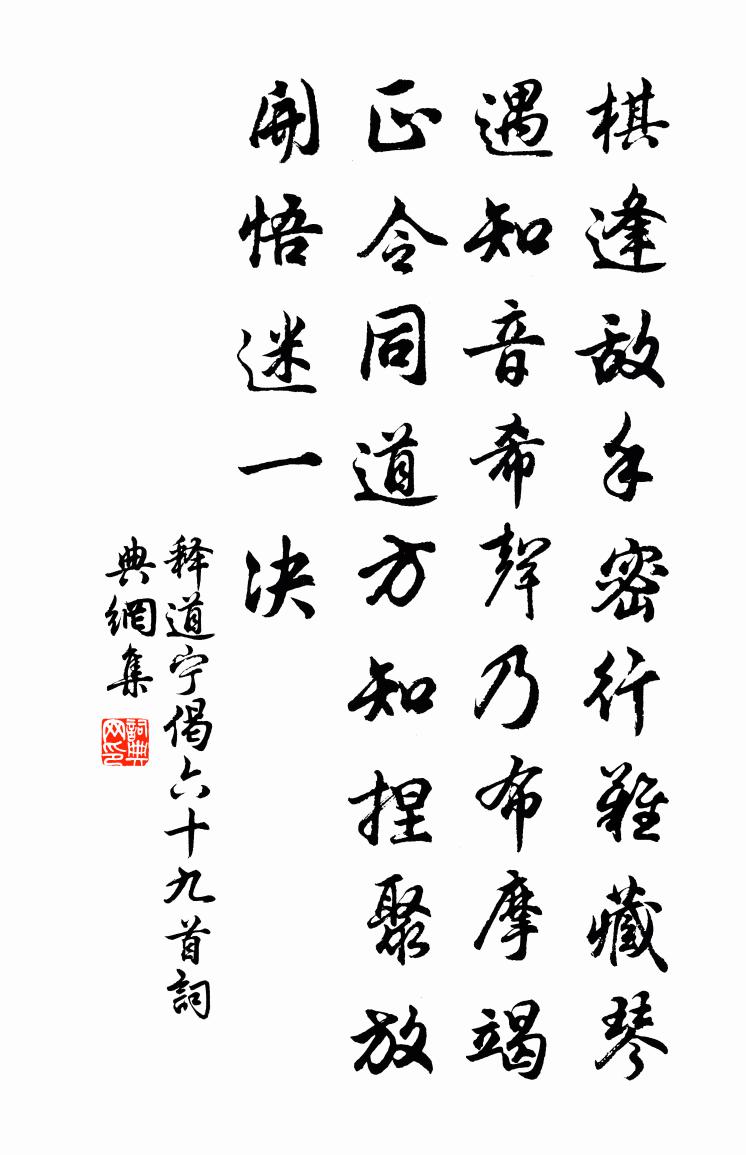 棋逢敌手密行難藏琴
遇知音希聲乃布摩竭
正令同道方知捏聚放
開悟迷一决
释道宁偈六十九首詞
典網集
詞典
网印